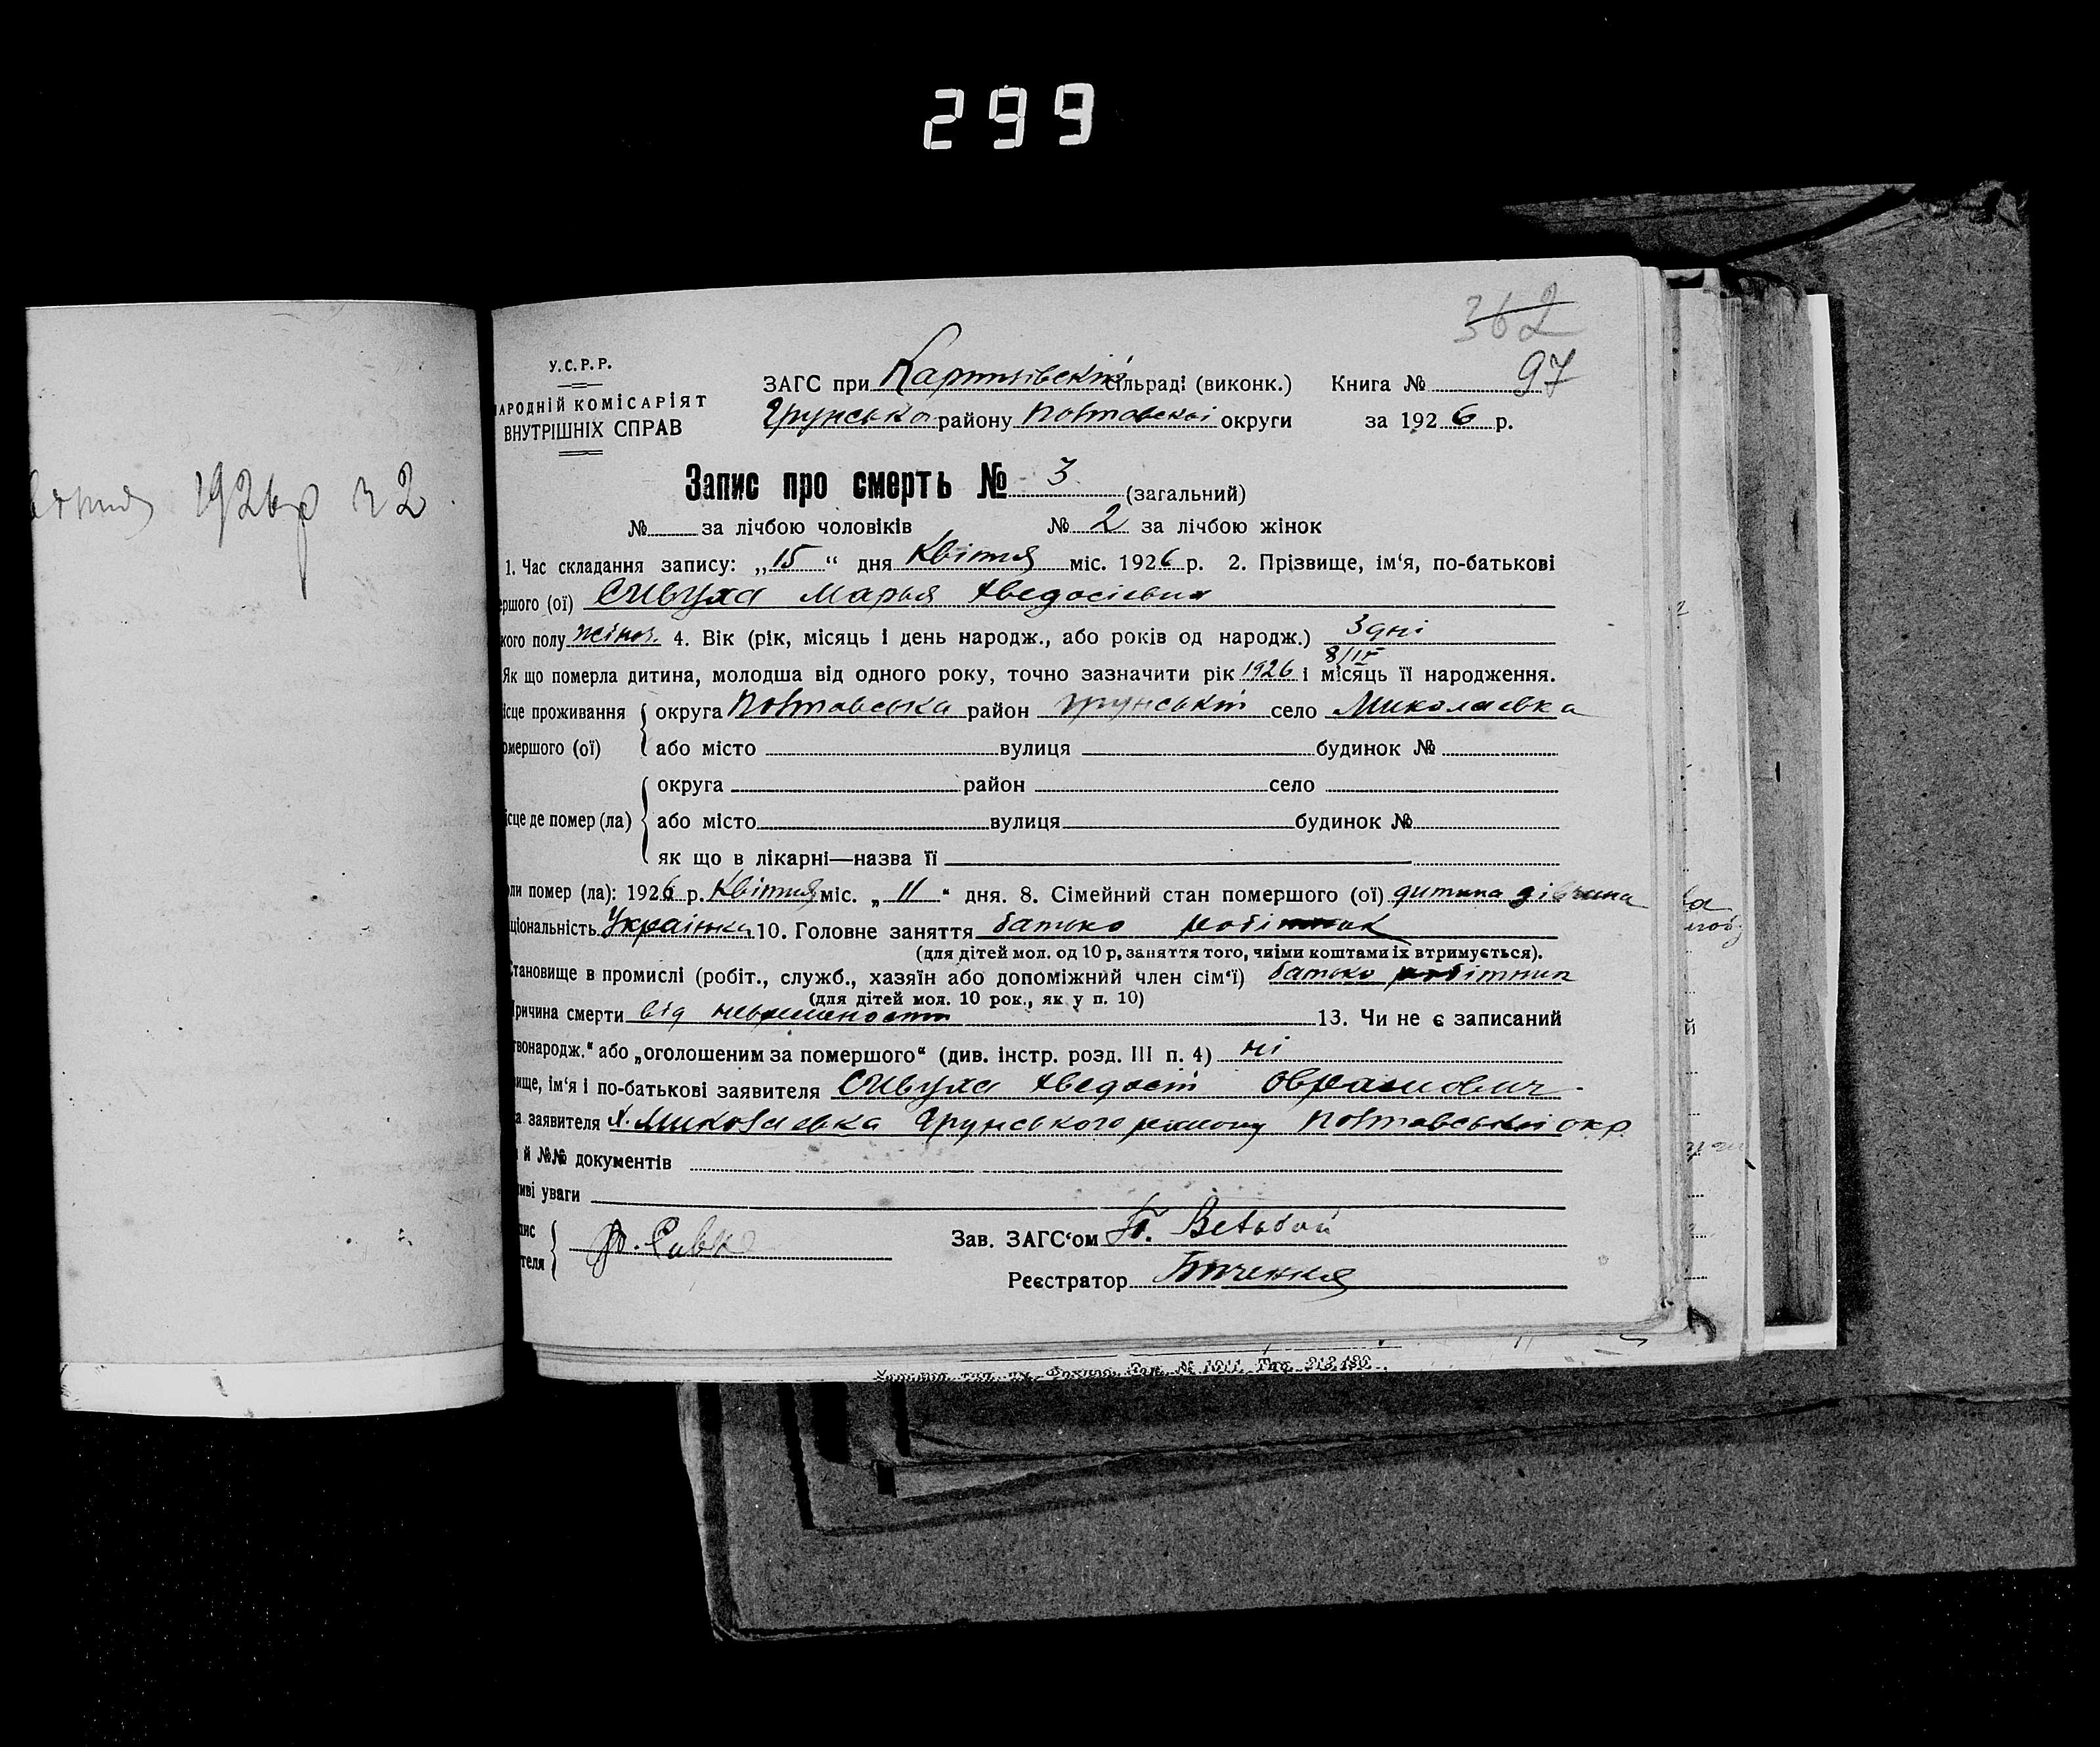 299
362
97
У.С.Р.Р.
НАРОДНІЙ КОМІСАРІЯТ
ВНУТРІШНІХ СПРАВ
ЗАГС при сільраді (виконк.) Книга №
Грунсько району Полтавської округи за 1926 р.
1926р
Запис про смерть № 3 (загальний)
№ за лічбою чоловіків № 2 за лічбою жінок
1. Час складання запису: „15“ дня Квітня міс. 1926 р. 2. Прізвище, ім‘я, по-батькові
ершого (ої) Сивуха Марья Авдосіевна
кого полу жіноч. 4. Вік (рік, місяць і день народж., або років од народж.) 3 дні
8/IV
Як що померла дитина, молодша від одного року, точно зазначити рік 1926 і місяць її народження.
ісце проживання округа Полтавська район Грунській село Миколаевка
омершого (ої) або місто вулиця будинок №
округа район село
ісце де помер (ла) або місто вулиця будинок №
як що в лікарні—назва її
оли помер (ла): 1926 р. Квітня міс. „11“ дня. 8. Сімейний стан помершого (ої) дитина дівчина
ціональність Українка 10. Головне заняття батько робітник
(для дітей мол. од 10 р, заняття того, чиїми коштами їх втримується).
тановище в промислі (робіт., служб., хазяїн або допоміжний член сім‘ї) батько робітник
(для дітей мол. 10 рок., як у п. 10)
ричина смерти від 13. Чи не є записаний
вонародж.“ або „оголошеним за помершого“ (див. інстр. розд. III п. 4) ні
вище, ім‘я і по-батькові заявителя Сивуха Авдосій
а заявителя х. Миколаевка Грунського району Полтавської окр
і й №№ документів
иві уваги
пис
теля
Зав. ЗАГС‘ом
Реєстратор